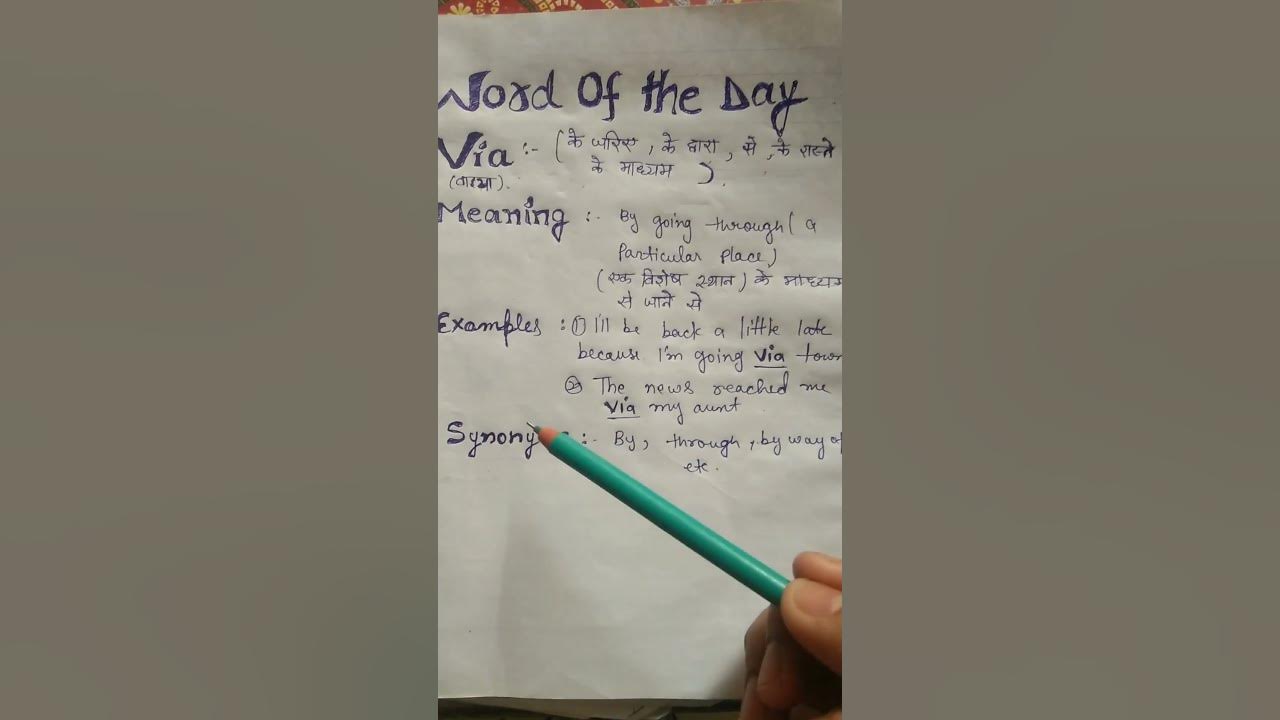 Word Of the Day
Via :- (के जरिए, के द्वारा, से, के रास्ते
के माध्यम ).
(वाया).
Meaning :- By going through (a
Particular Place)
(एक विशेष स्थान) के माध्यम
से जाने से
Examples :① I'll be back a little late
because I'm going via town
② The news reached me
via my aunt
Synony :- By, through, by way of
etc.